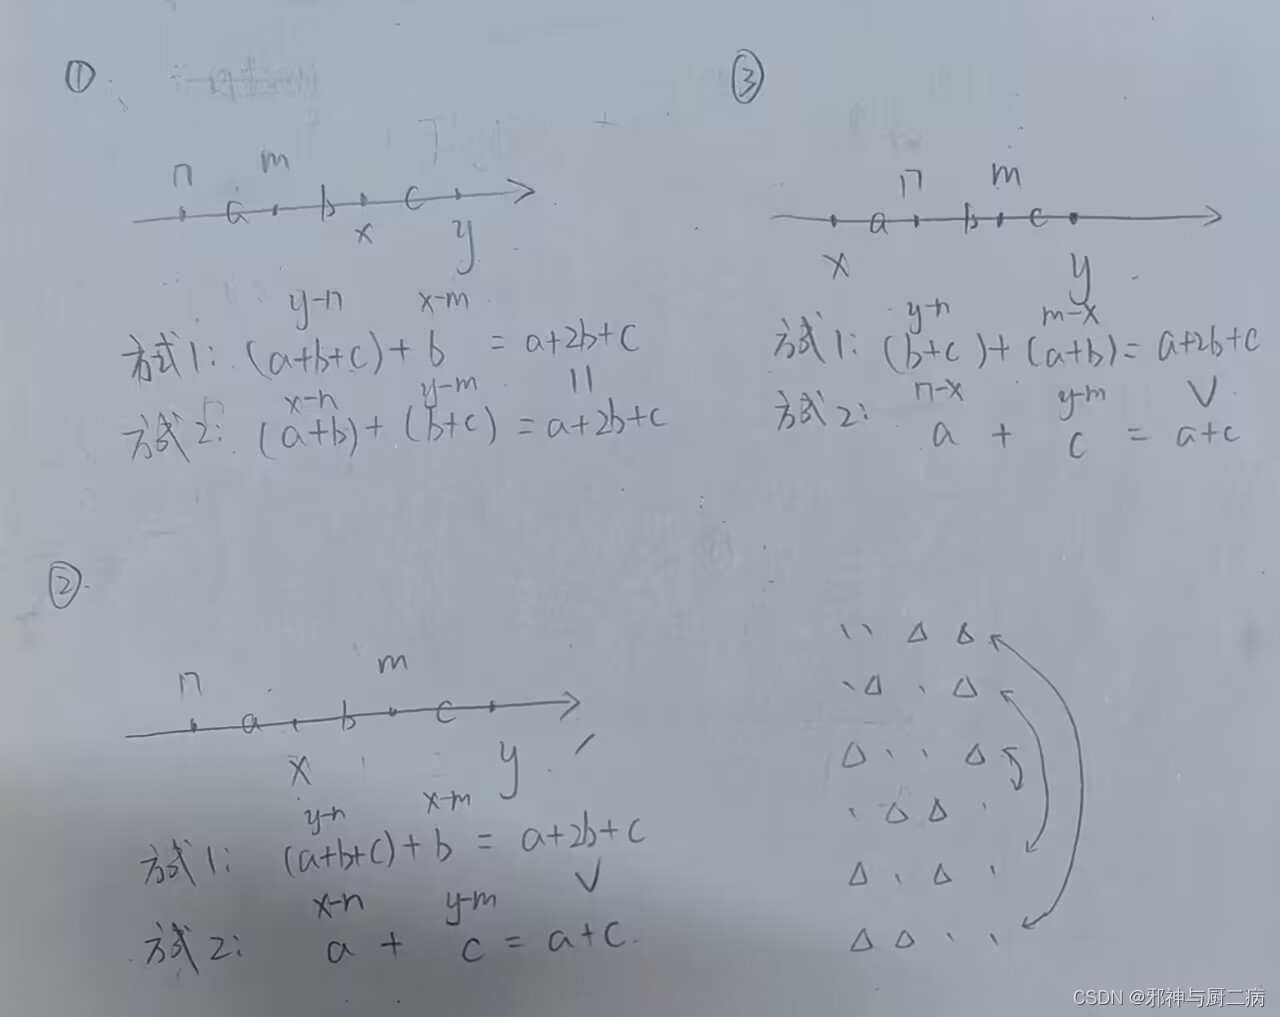 ①
n m
a b c
x y
y-n x-m
方式1: (a+b+c)+b = a+2b+c
x-n y-m =
方式2: (a+b)+(b+c) = a+2b+c
③
n m
a b c
x y
y-n m-x
方式1: (b+c)+(a+b)= a+2b+c
n-x y-m ∨
方式2: a + c = a+c
②
n m
a b c
x y
y-n x-m
方式1: (a+b+c)+b = a+2b+c
x-n y-m ∨
方式2: a + c = a+c.
· · △ △
· △ · △
△ · · △
· △ △ ·
△ · △ ·
△ △ · ·
CSDN @邪神与厨二病